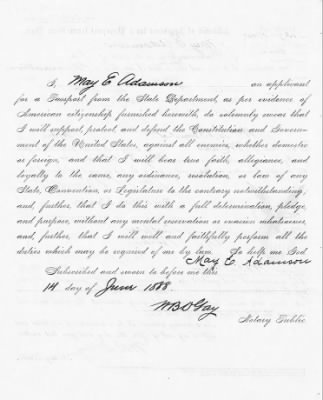 I, May E Adamson an applicant
for a Passport from the State Department, as per evidence of
American citizenship furnished herewith, do solemnly swear that
I will support, protect, and defend the Constitution and Govern-
ment of the United States, against all enemies, whether domestic
or foreign, and that I will bear true faith, allegiance, and
loyalty to the same, any ordinance, resolution, or law of any
State, Convention, or Legislature to the contrary notwithstanding;
and, further, that I do this with a full determination, pledge,
and purpose, without any mental reservation or evasion whatsoever,
and, further, that I will well and faithfully perform all the
duties which may be required of me by law. So help me God.
May E. Adamson
Subscribed and sworn to before me this
14 day of June 1888.
Notary Public